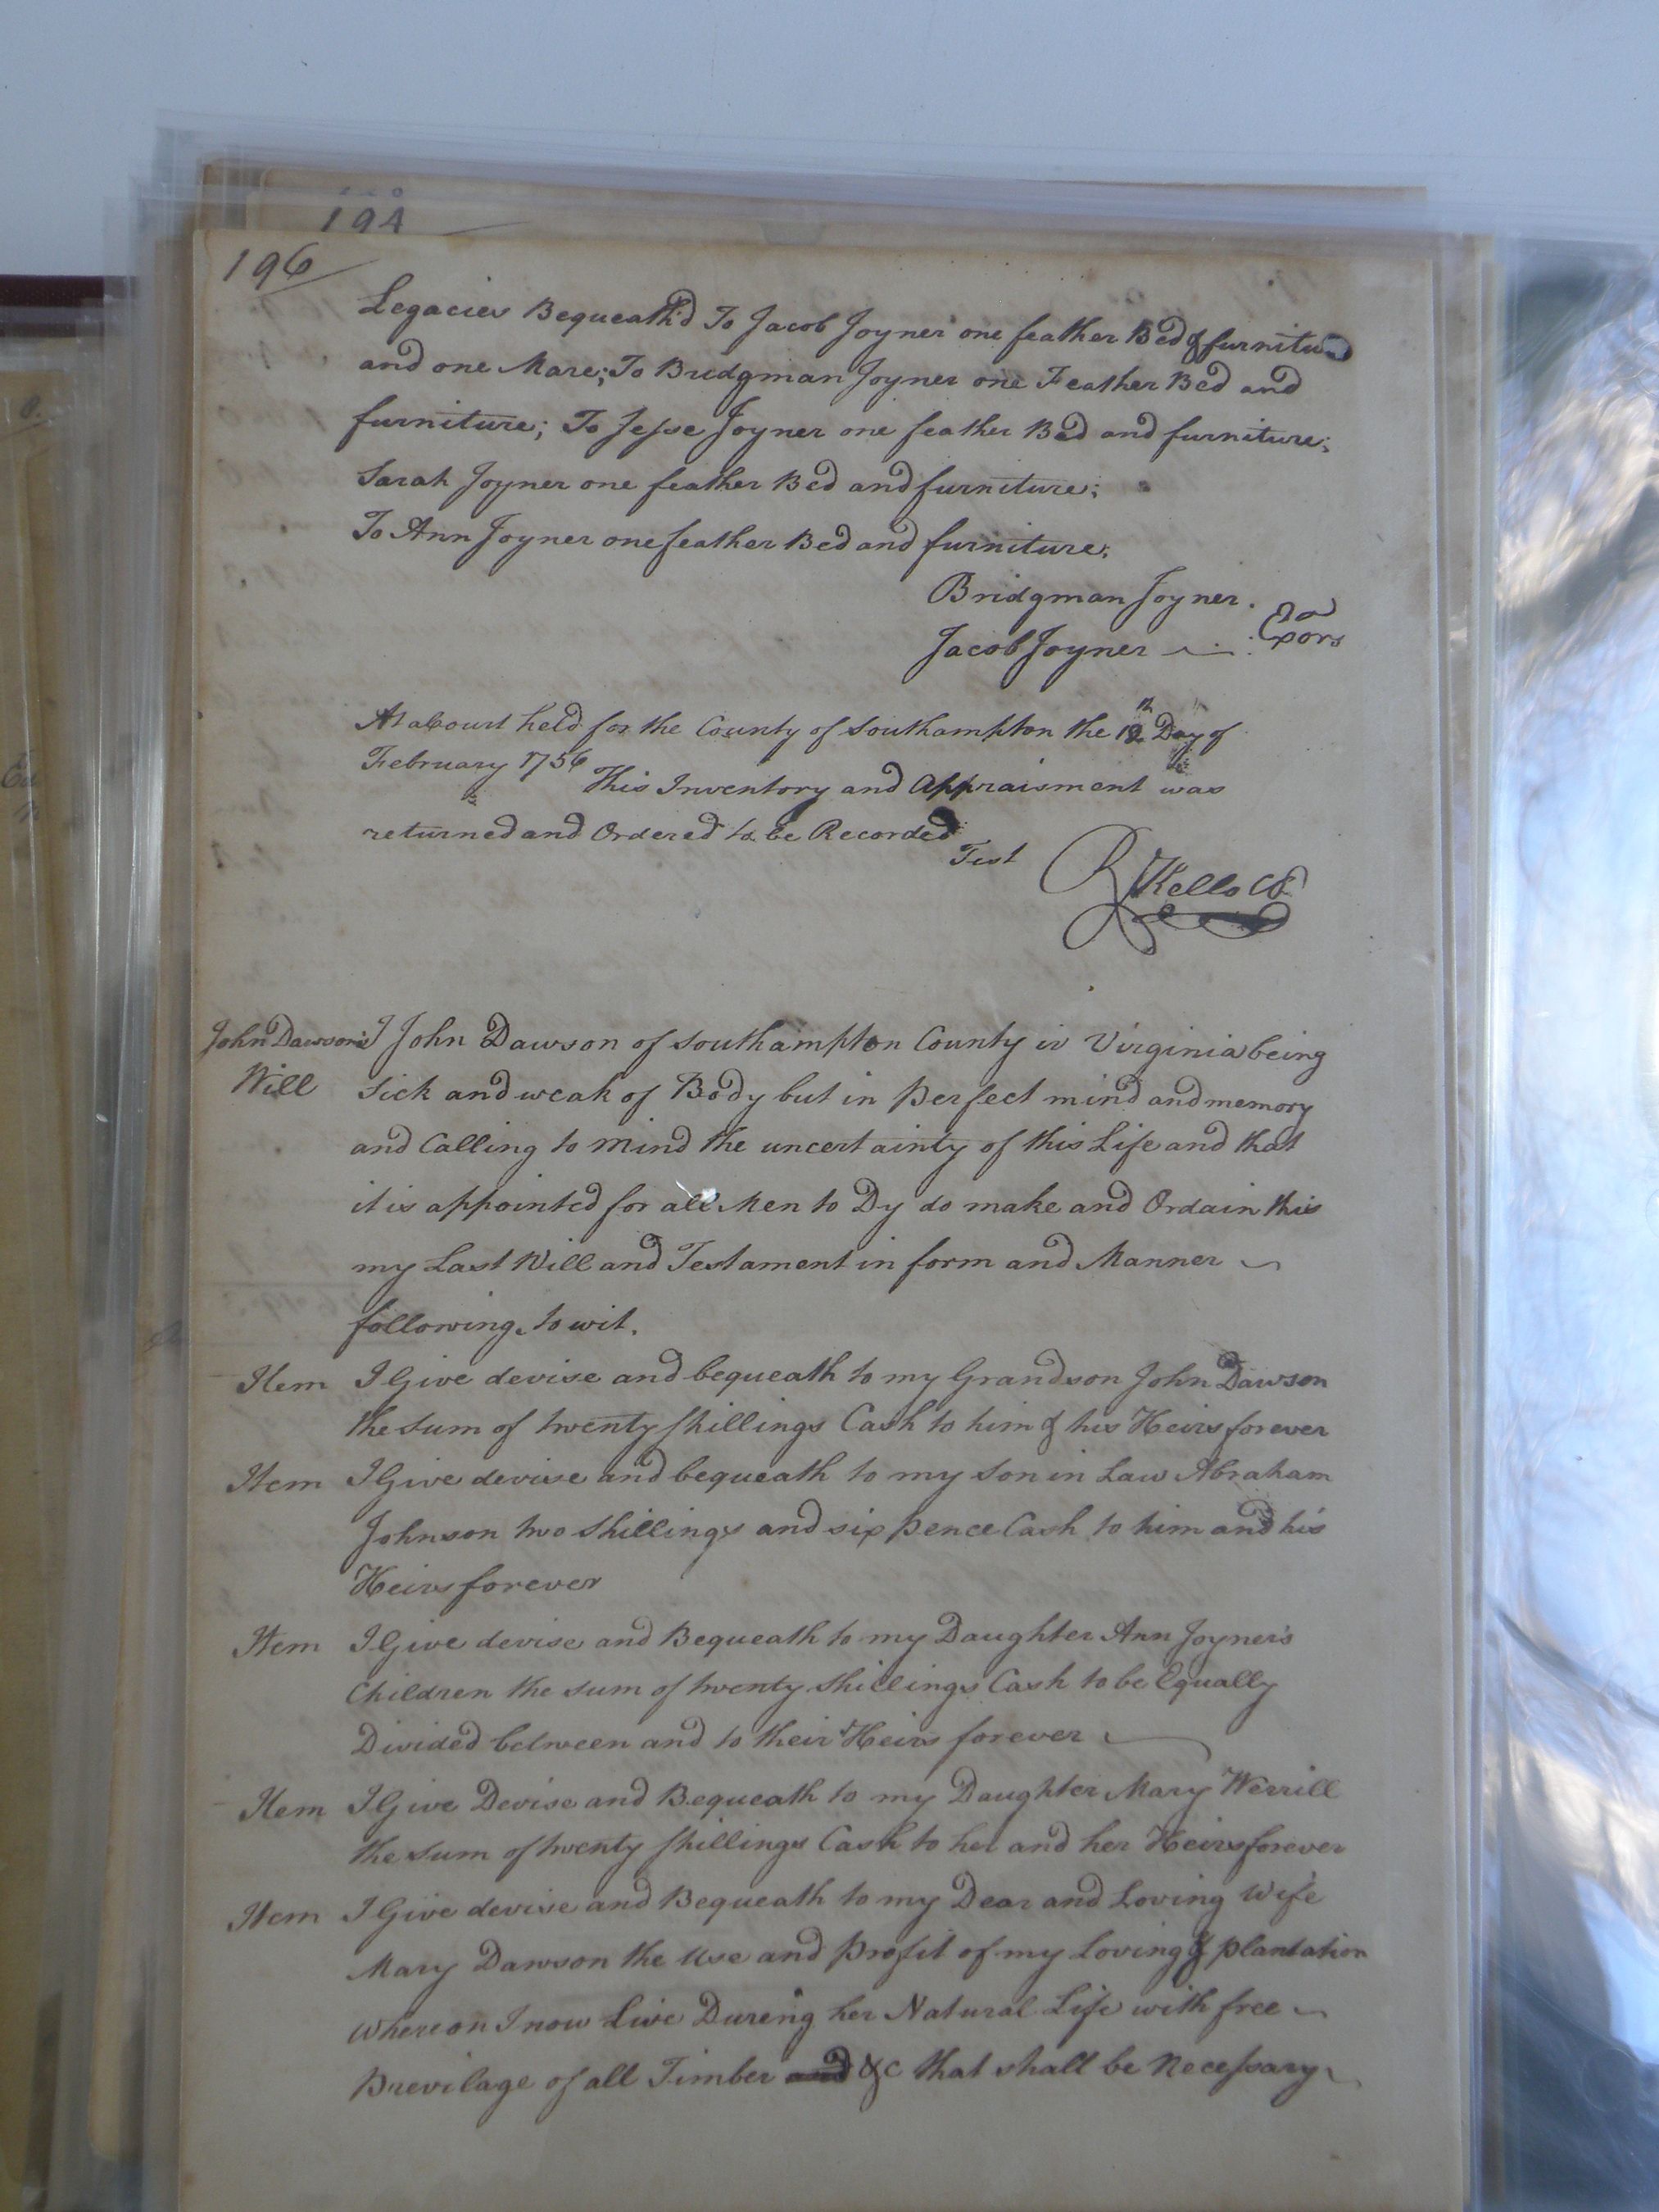 194
196
Legacies Bequeath'd To Jacob Joyner one feather Bed & furniture
and one Mare; To Bridgman Joyner one Feather Bed and
furniture; To Jesse Joyner one feather Bed and furniture;
Sarah Joyner one feather Bed and furniture;
To Ann Joyner one feather Bed and furniture;
Bridgman Joyner.
Jacob Joyner Exors
At a Court held for the County of Southampton the 12th Day of
February 1756 This Inventory and Appraisment was
returned and Ordered to be Recorded
Test
R Kello Cl
John Dawson's I John Dawson of Southampton County in Virginia being
Will Sick and weak of Body but in Perfect mind and memory
and Calling to mind the uncertainty of this Life and that
it is appointed for all Men to Dy do make and Ordain this
my Last Will and Testament in form and Manner
following to wit.
Item I Give devise and bequeath to my Grandson John Dawson
the Sum of twenty shillings Cash to him & his Heirs forever
Item I Give devise and bequeath to my Son in Law Abraham
Johnson two shillings and six pence Cash to him and his
Heirs forever
Item I Give devise and Bequeath to my Daughter Ann Joyner's
Children the sum of twenty shillings Cash to be Equally
Divided between and to their Heirs forever
Item I Give Devise and Bequeath to my Daughter Mary Werrill
the sum of twenty shillings Cash to her and her Heirs forever
Item I Give devise and Bequeath to my Dear and Loving Wife
Mary Dawson the Use and Profit of my Loving & plantation
whereon I now Live Dureing her Natural Life with free
Previlage of all Timber and &c that shall be Necessary